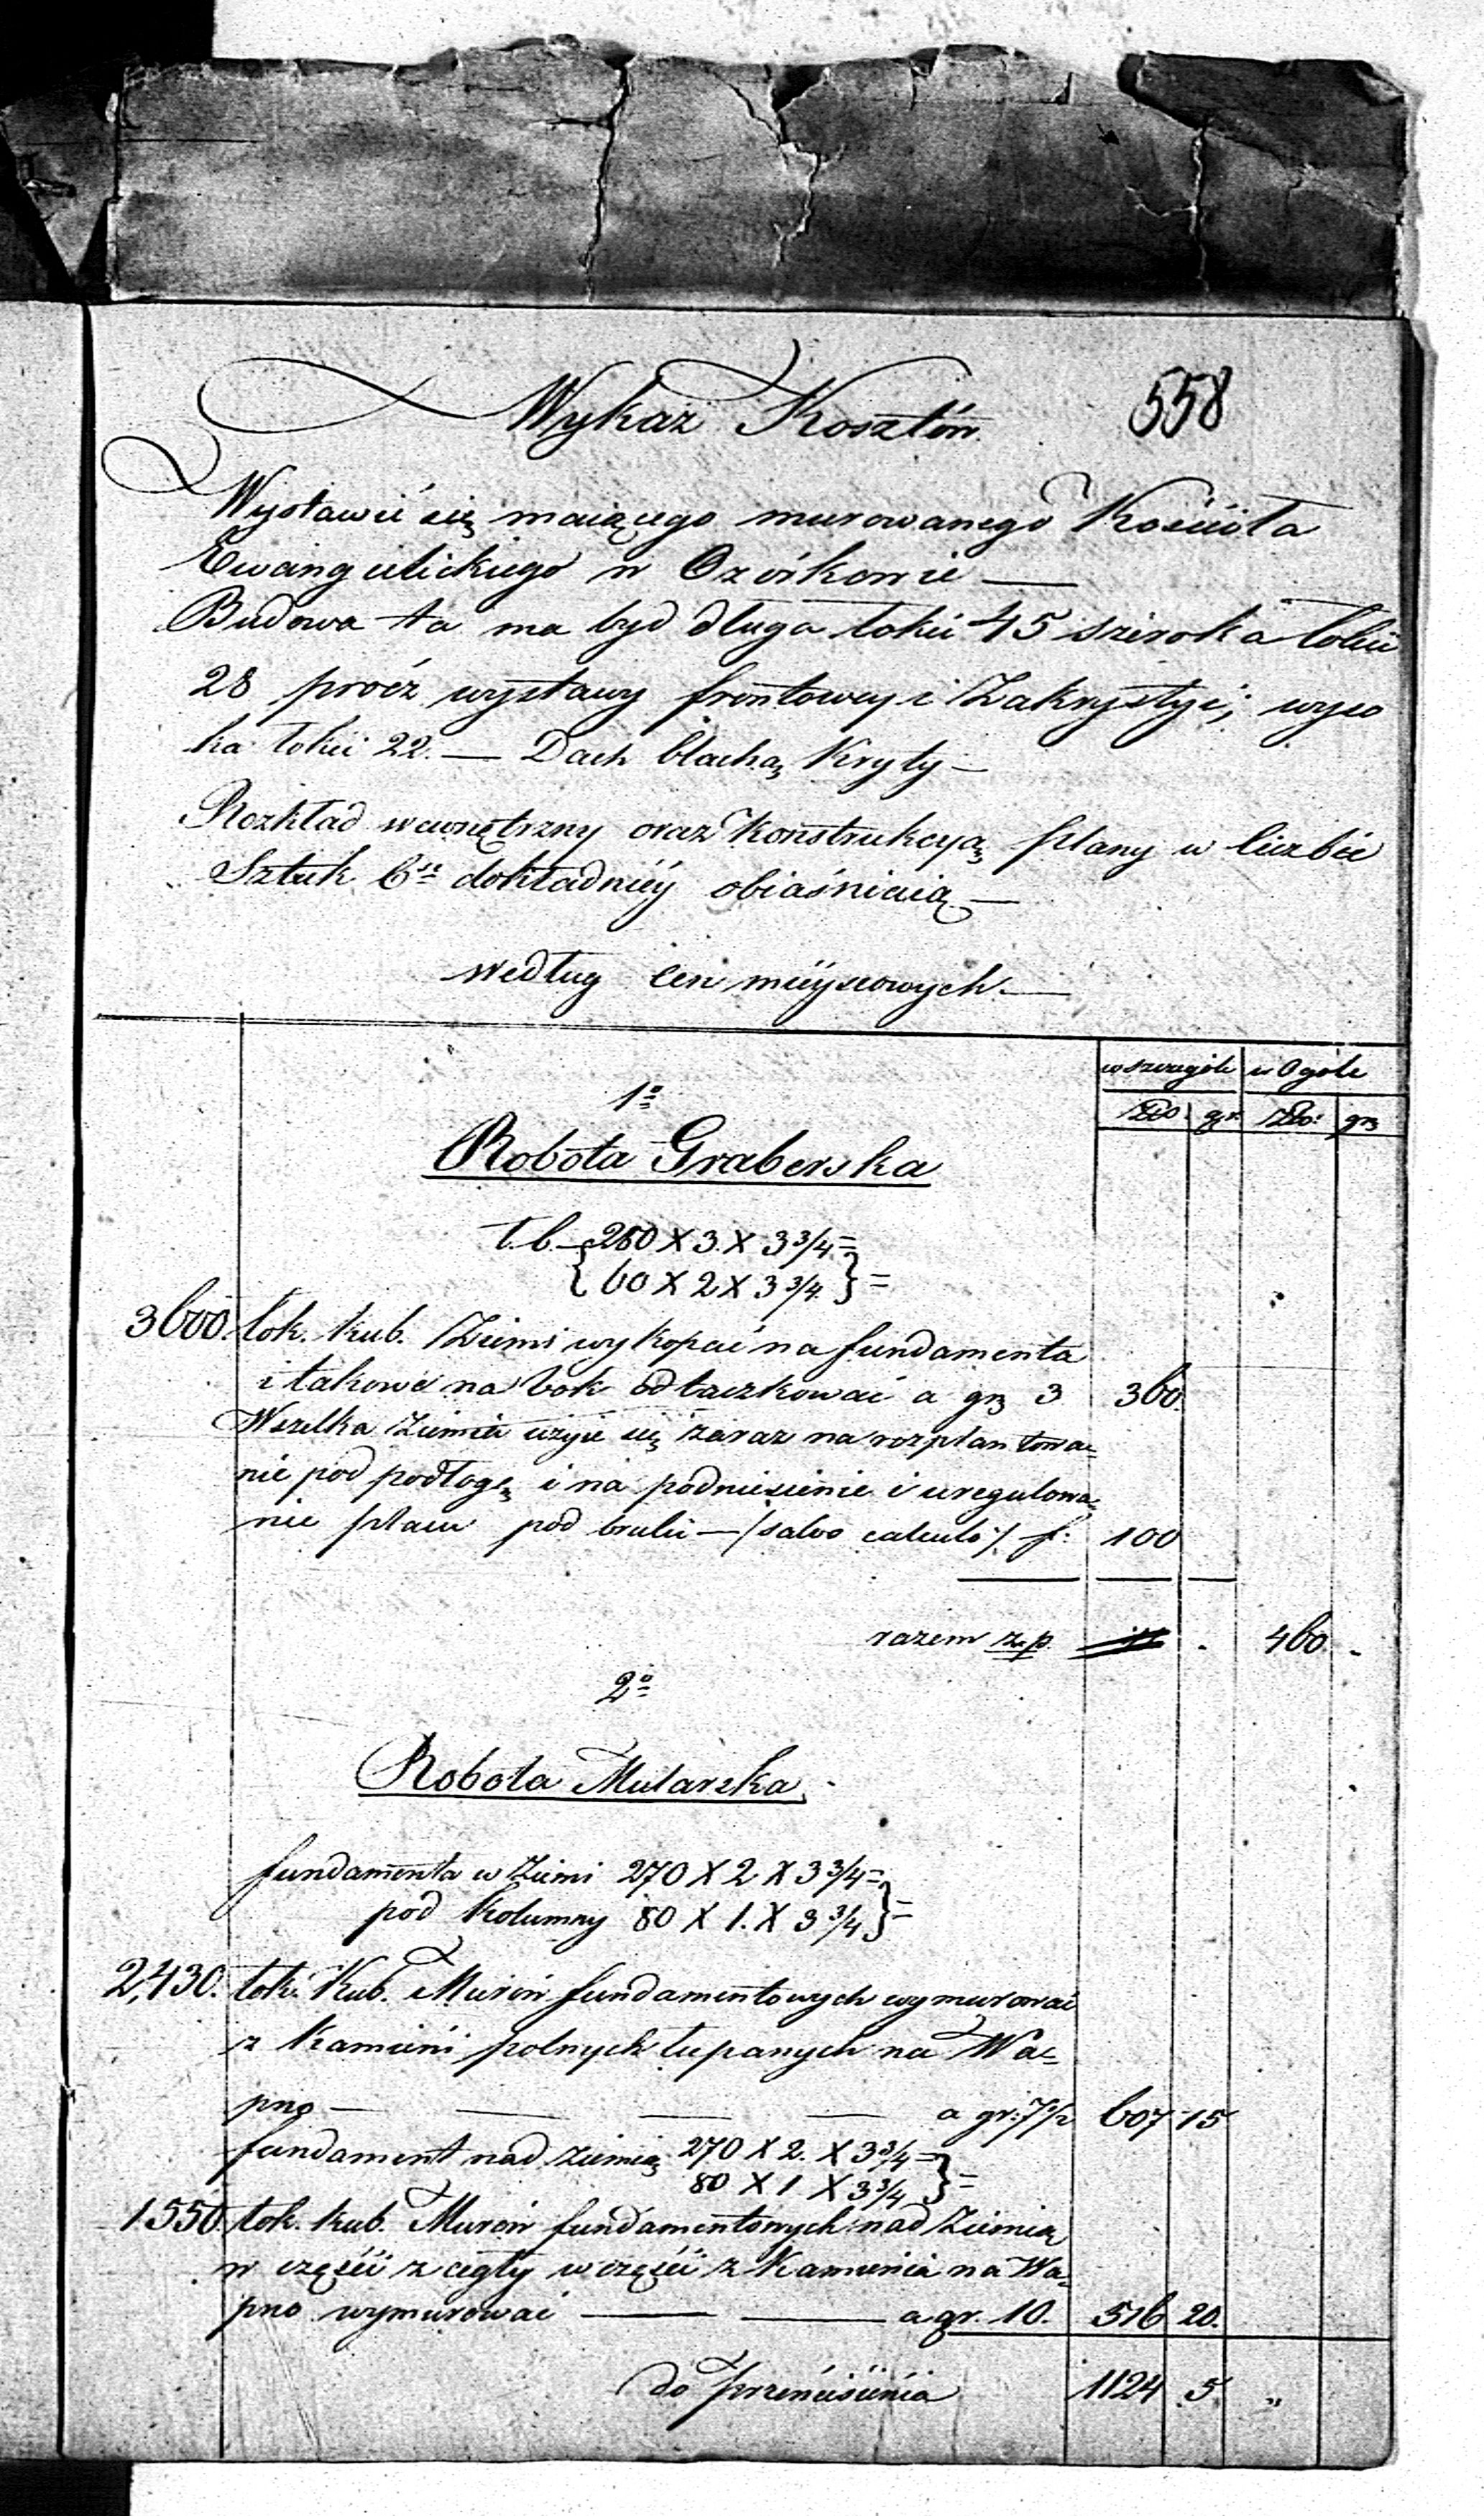 Wykaz Kosztów. 558
Wystawić się maiącego murowanego Kościoła
Ewangielickiego w Ozorkowie —
Budowa ta ma byd długa łokci 45 szeroka łokci
28 prócz wystawy frontowey i Zakrystyi; wyso
ka łokci 22. — Dach blachą Kryty —
Rozkład wewnętrzny oraz Konstrukcyą plany w liczbie
Sztuk 6 dokładniéy obiaśniaią —
według cen mieyscowych. —
w szczególe w Ogóle
Złp gr. Złp: gr
1º
Robota Graberska
t. b. 280 X 3. X 3 3/4 =
{ 60 X 2 X 3 3/4. } =
3600. łok. kub. Ziemi wykopać na fundamenta
i takowe na bok odtaczkować a gr 3 360.
Wszelka Ziemia użyie się zaraz na rozplantowa=
nie pod podłogę i na podniesienie i uregulowa=
nie placu pod bruki — /salvo calculo/ f: 100
razem z.p. . 460. .
2º
Robota Mularska.
fundamenta w Ziemi 270 X 2 X 3 3/4 =
pod Kolumny 80 X 1. X 3 3/4 } =
2,430. łok. Kub. Murów fundamentowych wymurować
z Kamieni polnych łupanych na Wa=
pno — — — — a gr: 7 1/2 607 15
fundament nad ziemią 270 X 2. X 3 3/4 =
80 X 1 X 3 3/4 } =
1550 łok. kub. Murów fundamentowych nad Ziemią
w części z cegły w części z Kamienia na Wa=
pno wymurować — — a gr. 10. 516 20.
do Przeniesienia 1124 5. "